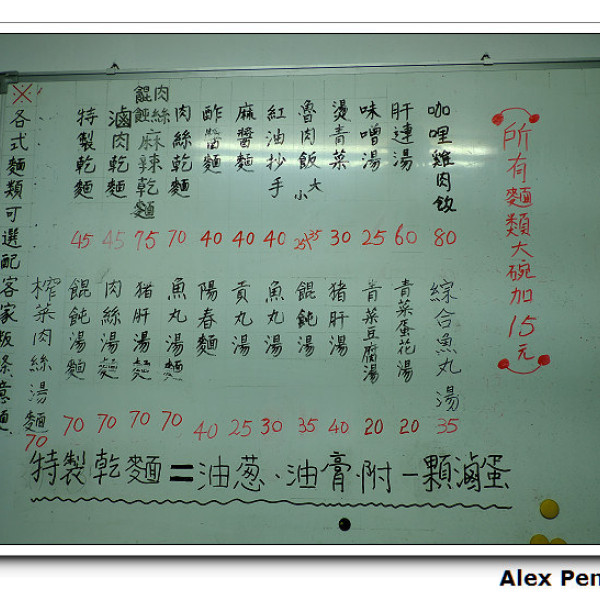 所有麵類大碗加15元
咖哩雞肉飯 80
肝連湯 60
味噌湯 25
燙青菜 30
魯肉飯 大35 小25
紅油抄手 40
麻醬麵 40
酢醬麵 40
肉絲乾麵 70
餛飩肉絲麻辣乾麵 75
滷肉乾麵 45
特製乾麵 45
綜合魚丸湯 35
青菜蛋花湯 20
青菜豆腐湯 20
豬肝湯 40
餛飩湯 35
魚丸湯 30
貢丸湯 25
陽春麵 40
魚丸湯麵 70
豬肝湯麵 70
肉絲湯麵 70
餛飩湯麵 70
榨菜肉絲湯麵 70
※各式麵類可選配客家粄條意麵
特製乾麵=油葱、油膏.附一顆滷蛋
Alex Pen